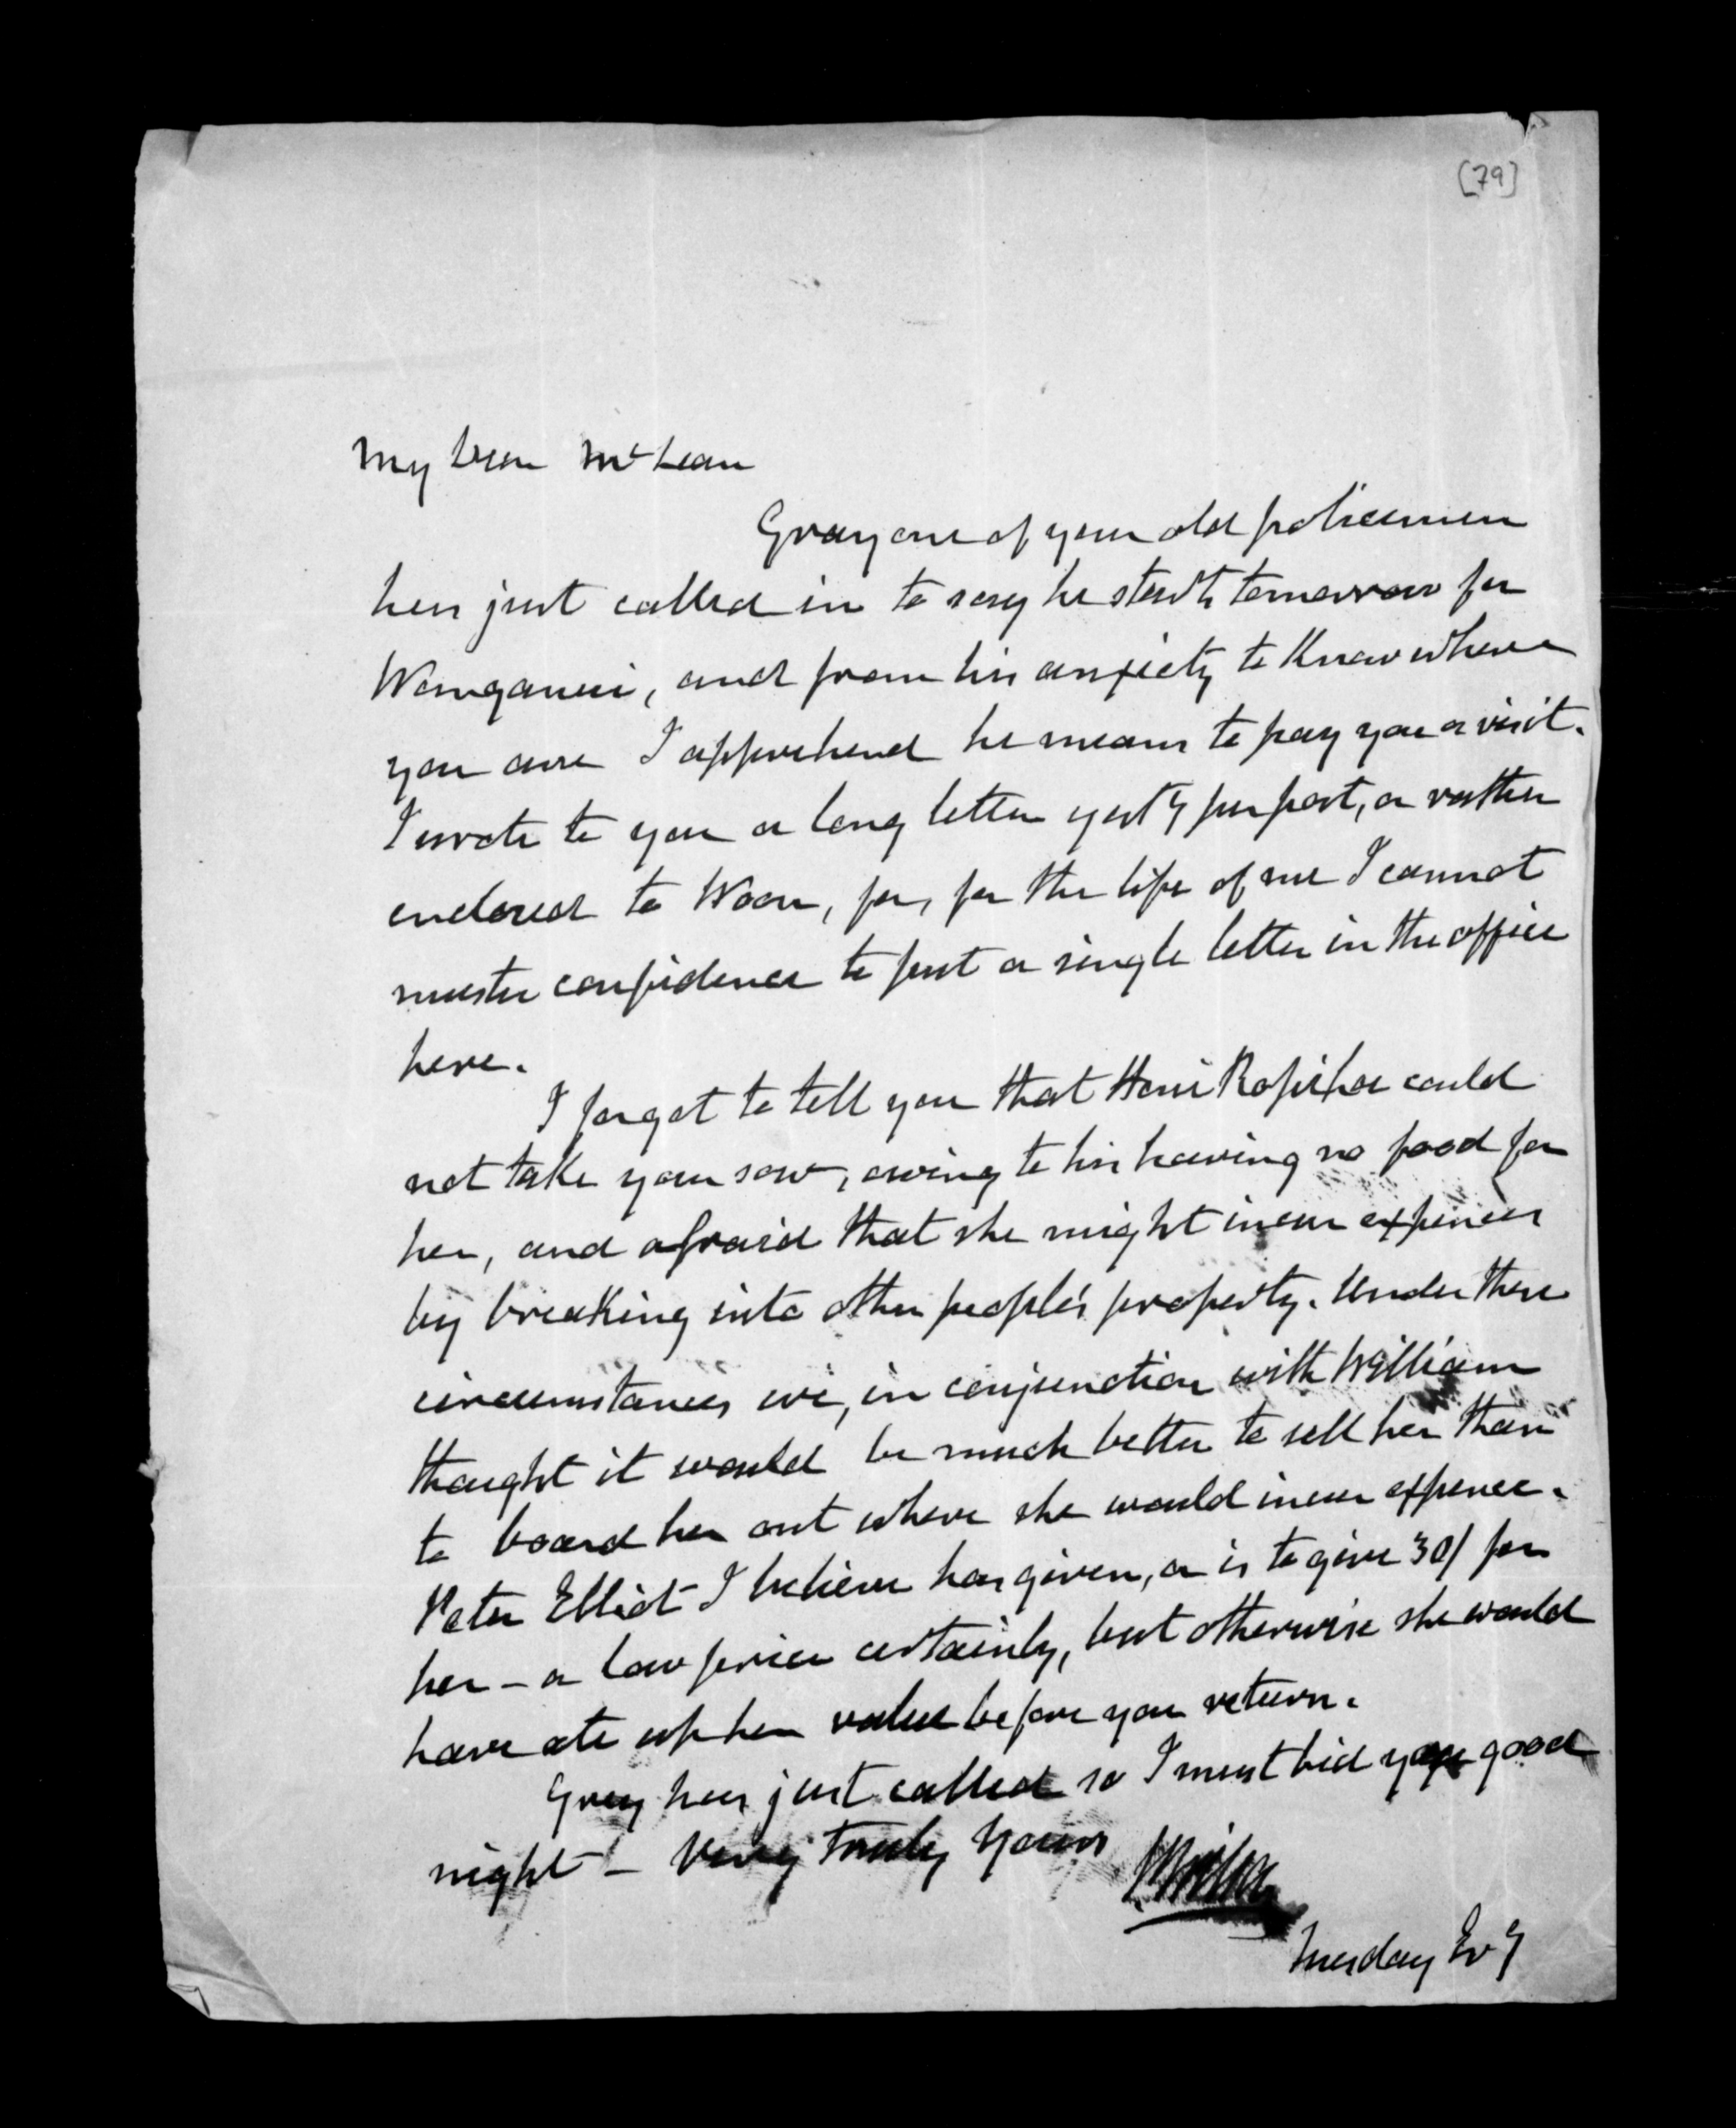 [79]
My Dear McLean
Gray one of your old policemen
has just called in to say he starts tomorrow for
Wanganui, and from his anxiety to Know where
you are I apprehend he means to pay you a visit.
I wrote to you a long letter yesty per post, or rather
enclosed to Woon, for, for the life of me I cannot
muster confidence to put a single letter in the office
here.
I forgot to tell you that Honi Ropiha could
not take your sow, owing to his having no food for
her, and afraid that she might incur expenses
by breaking into other people's property. Under these
circumstances we, in conjunction with William
thought it would be much better to sell her than
to board her out where she would incur expence.
Peter Elliot I believe has given, or is to give 30/ for
her – a low price certainly, but otherwise she would
have ate up her value before you return.
Gray has just called so I must bid you good
night – Very truly Yours
Tuesday Evg